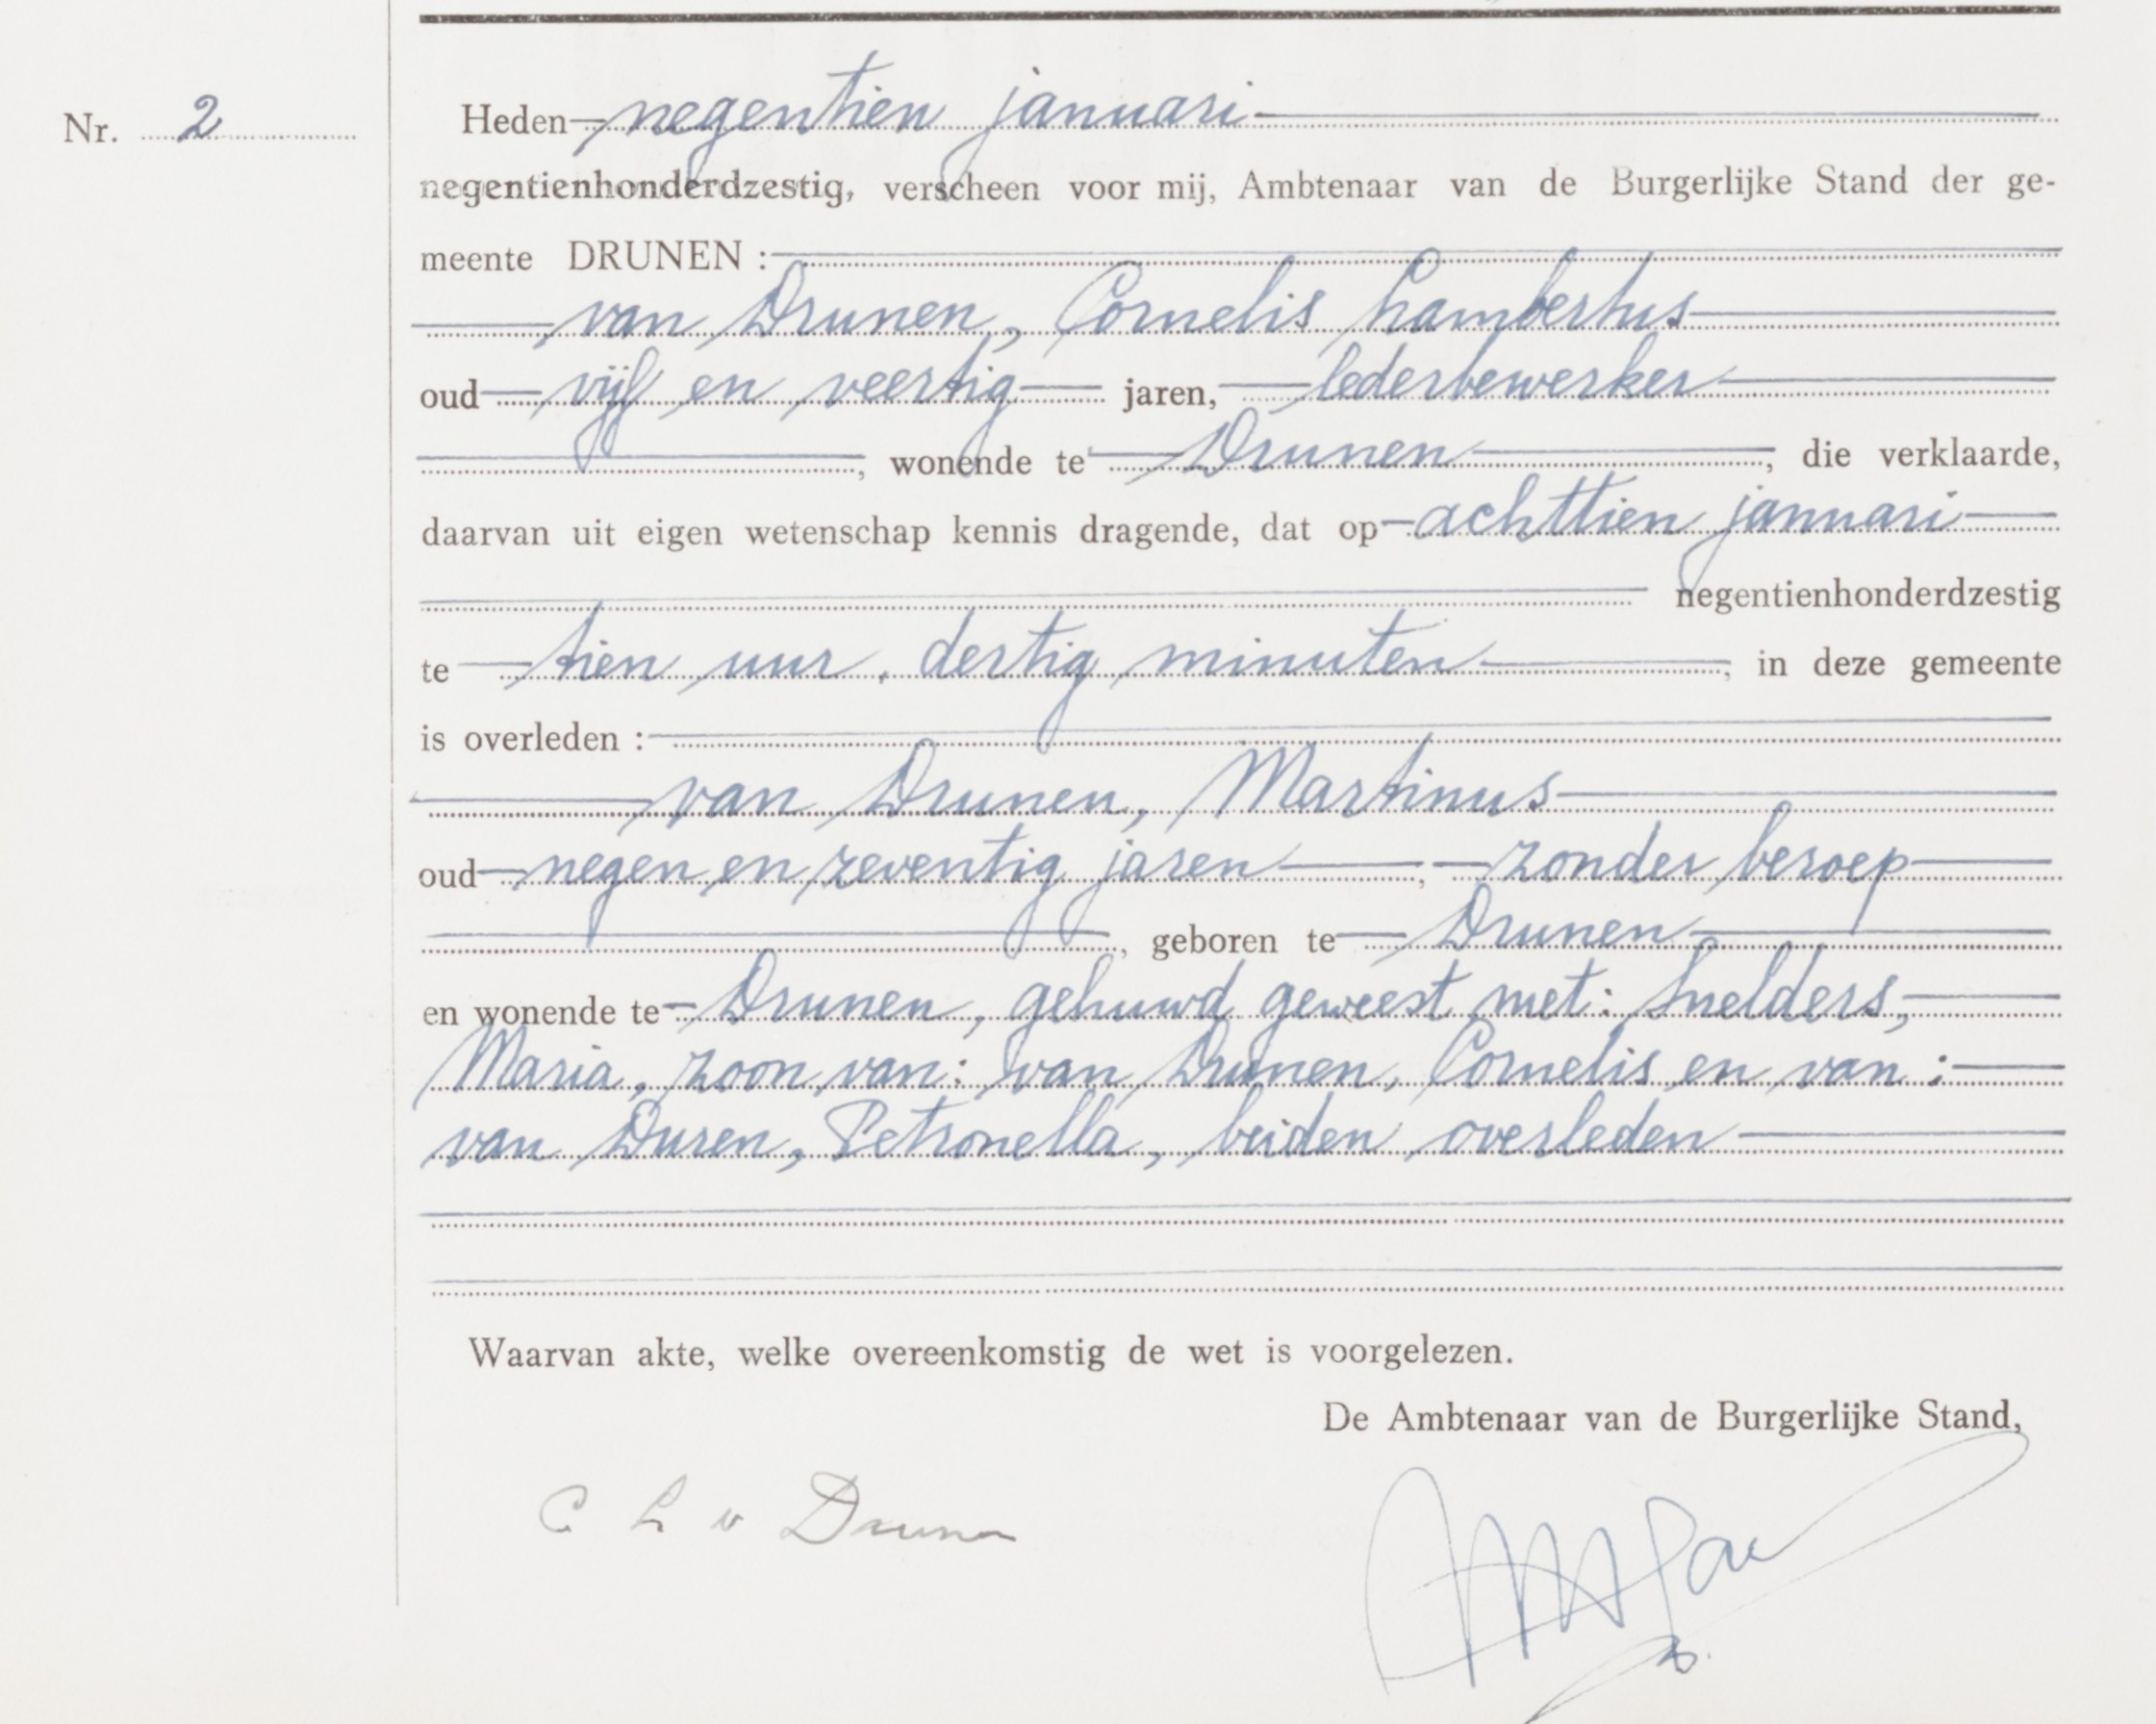 Nr. 2
Heden negentien januari
negentienhonderdzestig, verscheen voor mij, Ambtenaar van de Burgerlijke Stand der ge-
meente DRUNEN :
van Drunen, Cornelis Lambertus
oud vijf en veertig jaren, lederbewerker
, wonende te Drunen, die verklaarde,
daarvan uit eigen wetenschap kennis dragende, dat op achttien januari
negentienhonderdzestig
te tien uur, dertig minuten, in deze gemeente
is overleden :
van Drunen, Martinus
oud negen en zeventig jaren, zonder beroep
, geboren te Drunen
en wonende te Drunen, gehuwd geweest met: Smelders,
Maria, zoon van: van Drunen, Cornelis en van :
van Duren, Petronella, beiden overleden
Waarvan akte, welke overeenkomstig de wet is voorgelezen.
De Ambtenaar van de Burgerlijke Stand,
C L v Drunen